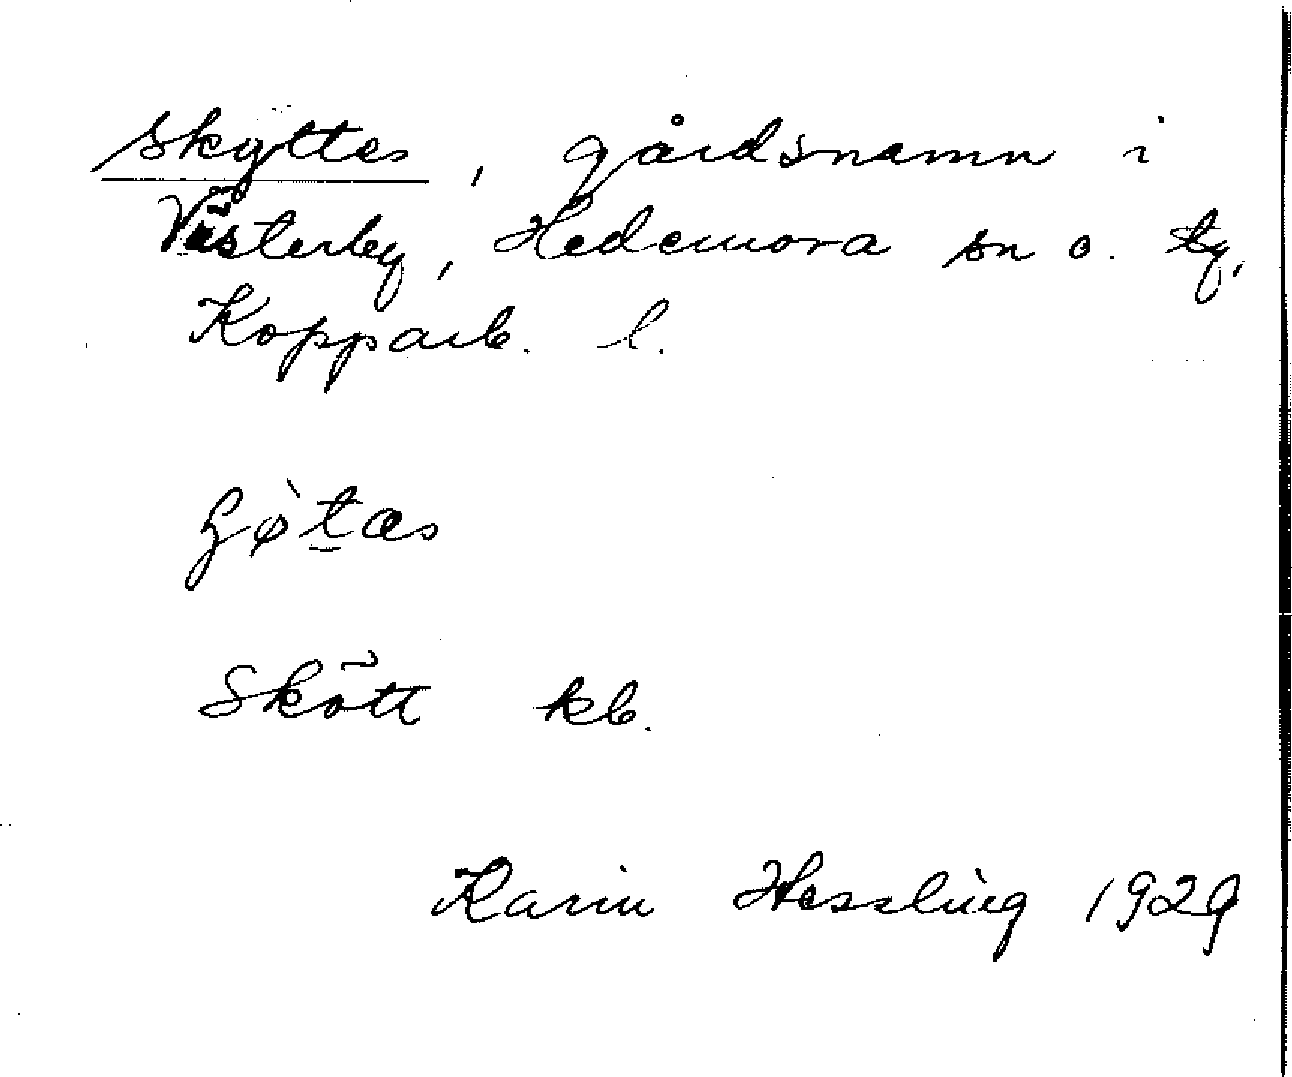 Skyttes, gårdsnamn i
Västerby, Hedemora sn o. tg,
Kopparb. l.
Skött kb.
Karin Hessling 1929